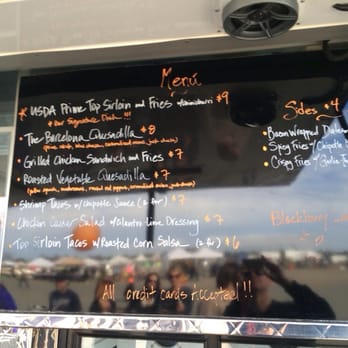 Menú
* USDA Prime Top Sirloin and Fries w/chimichurri $9
* Our Signature Dish !!!
• The Barcelona Quesadilla $8
• Grilled Chicken Sandwich and Fries $7
• Roasted Vegetable Quesadilla $7
• Shrimp Tacos w/Chipotle Sauce (2 for) $7
• Chicken Caesar Salad w/Cilantro Lime Dressing $7
• Top Sirloin Tacos w/Roasted Corn Salsa (2 for) $6
Sides $4
• Bacon Wrapped Dates
• Spicy Fries w/Chipotle
• Crispy Fries w/Garlic
Blackberry
All credit cards accepted !!